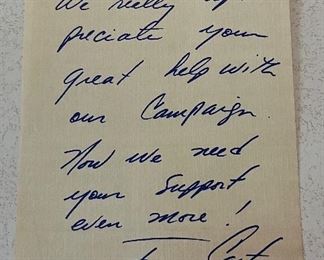 We really ap-
preciate your
great help with
our Campaign.
Now we need
your Support
even more!